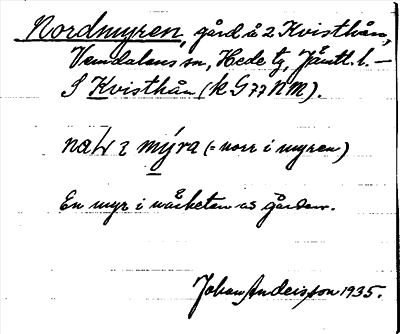 Nordmyren, gård å 2 Kvisthån,
Vemdalens sn, Hede tg, Jämtl. l. –
S Kvisthån (k G 77 N M).
mýra (= norr i myren)
En myr i närheten av gården.
Johan Andersson 1935.